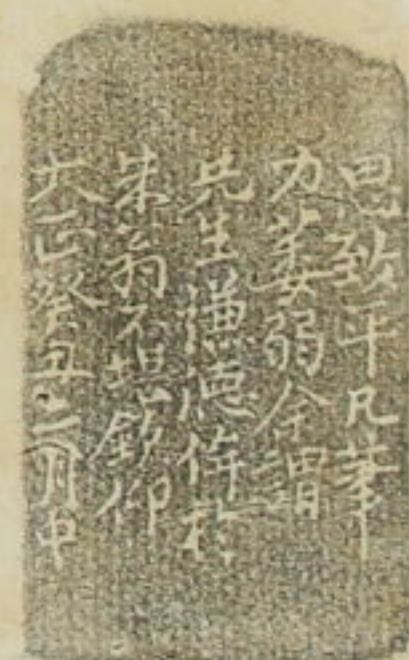 思致平凡筆
力萎弱余謂
先生謙徳侔於
朱翁不堪欽仰
大正癸丑二月中